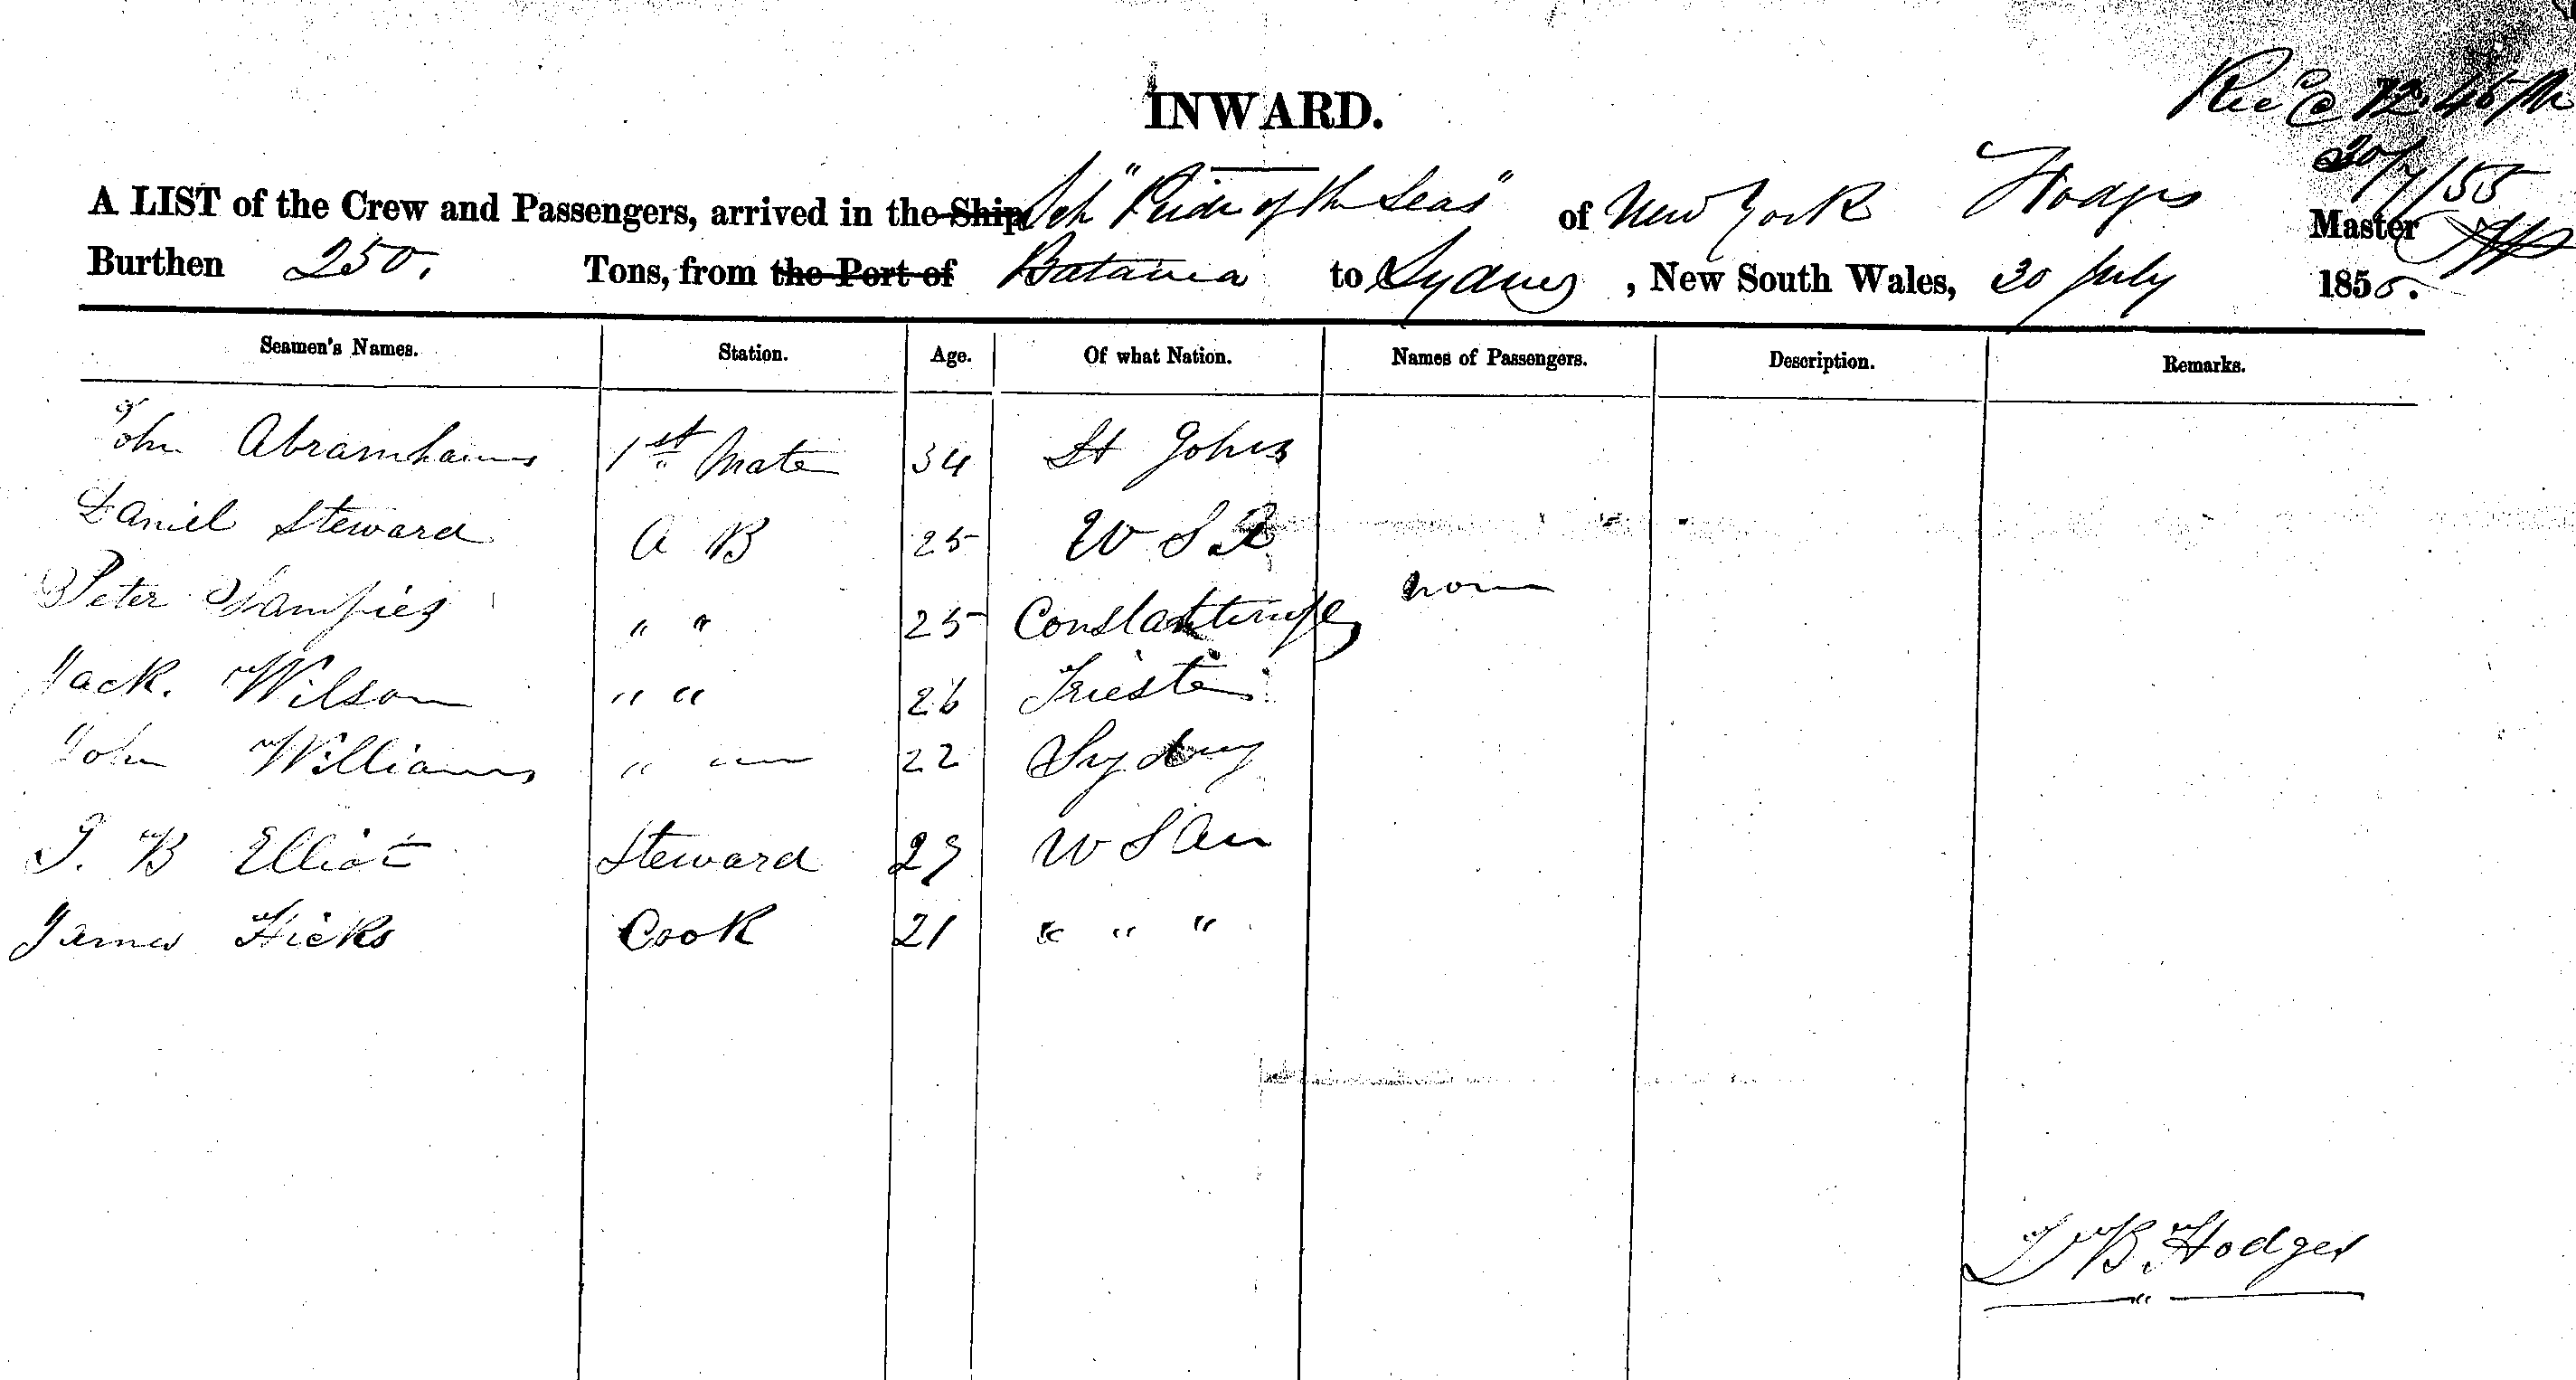 Rec'd @ 12.45 PM
20/7/55
INWARD.
A LIST of the Crew and Passengers, arrived in the Ship Sch "Pride of the Seas" of New York Hodges Master
Burthen 250. Tons, from the Port of Batavia to Sydney, New South Wales, 20 July 1855.
Seamen's Names. Station. Age. Of what Nation. Names of Passengers. Description. Remarks.
John Abramhams 1st Mate 34 St Johns
Daniel Steward A B 25 W S
Peter 25 Constantinople none
Jack. Wilson " " 26 Trieste
John Williams " " 22 Sydney
T. B Elliot Steward 29 W S
James Hicks Cook 21 " " "
B. Hodges